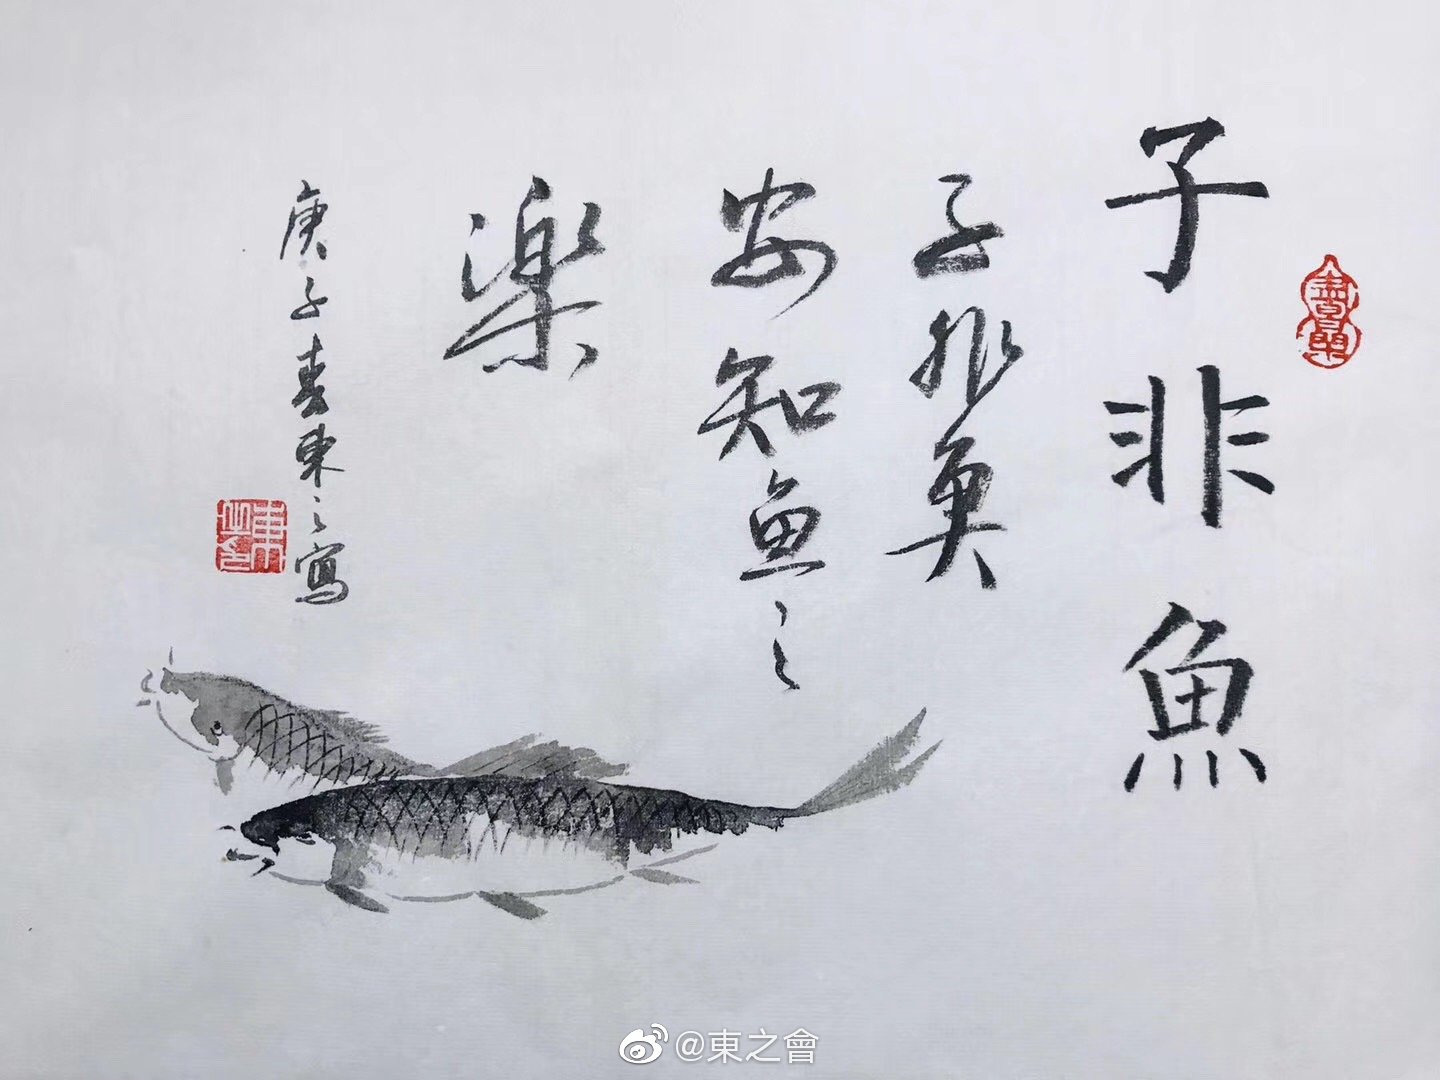 子非魚
子非魚
安知魚之
樂
庚子春東之寫
東之印
@東之會